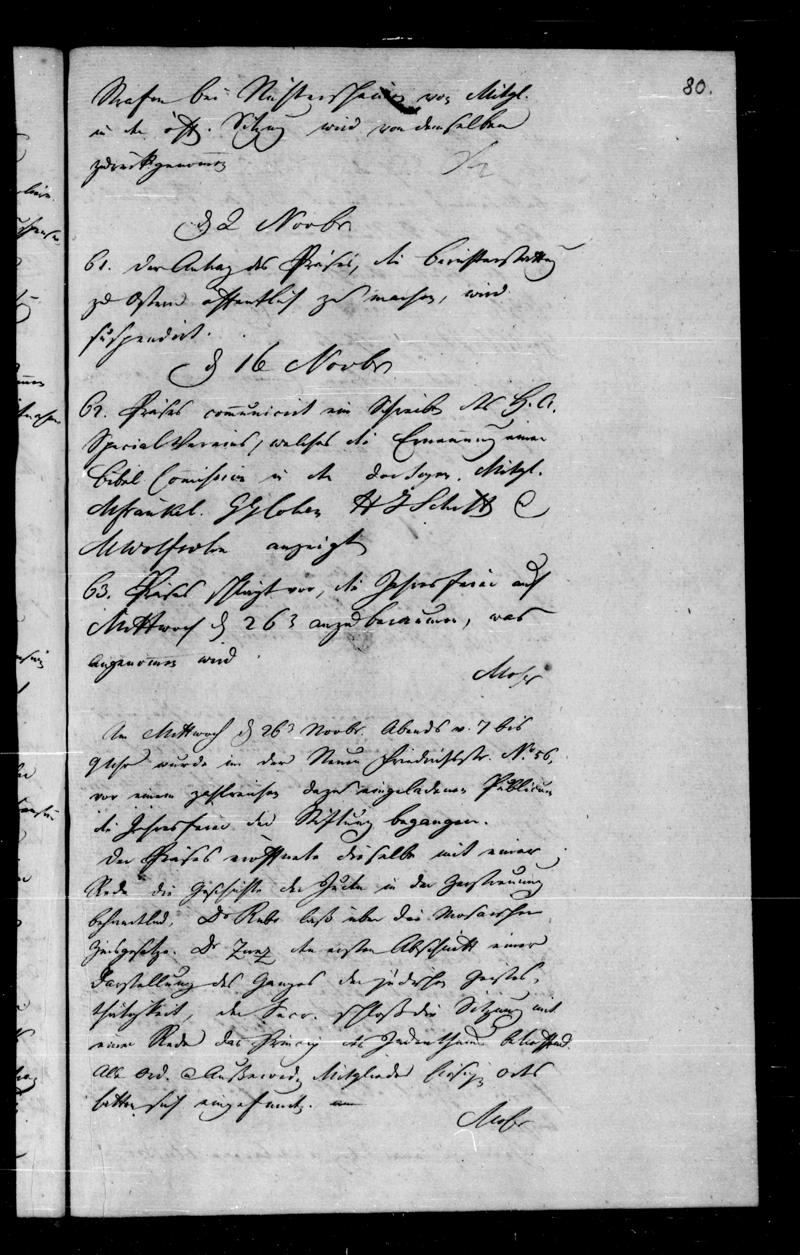 80.
Strafen bei Nichterscheinen von Mitgl.
in der öff. Sitzung wird von demselben
zurückgenommen
d 2 Novbr
61. Der Antrag des Präses, die Berichterstattung
zu Ostern öffentlich zu machen, wird
suspendirt.
d 16 Novbr
62. Präses communicirt ein Schreiben des H. A.
Special Vereins, welches die Ernennung einer
Bibel Comission in den dortigen Mitgl.
Mfränkl. GGCohen HJSchiff &
MWolfsohn anzeigt
63. Präses schlägt vor, die Jahresfeier auf
Mittwoch d 26 3 anzuberaumen, was
angenommen wird
Moser
Am Mittwoch d 26 Novbr. Abends v. 7 bis
9 Uhr wurde in der Neuen Friedrichsstr. No 56,
vor einem zahlreichen dazu eingeladenen Publicum
die Jahresfeier der Stiftung begangen.
Der Präses eröffnete dieselbe mit einer
Rede die Geschichte der Juden in der Zerstreuung
behandelnd, Dr Rubo laß über die Mosaischen
Dr Zunz den ersten Abschnitt einer
Darstellung des Ganges der jüdischen Geistes,
thätigkeit, der Secr. schloß die Sitzung mit
einer Rede das Princip des Judenthums betreffend.
Alle ord. & Mitglieder hiesigen Orts
hatten sich eingefunden.
Moser